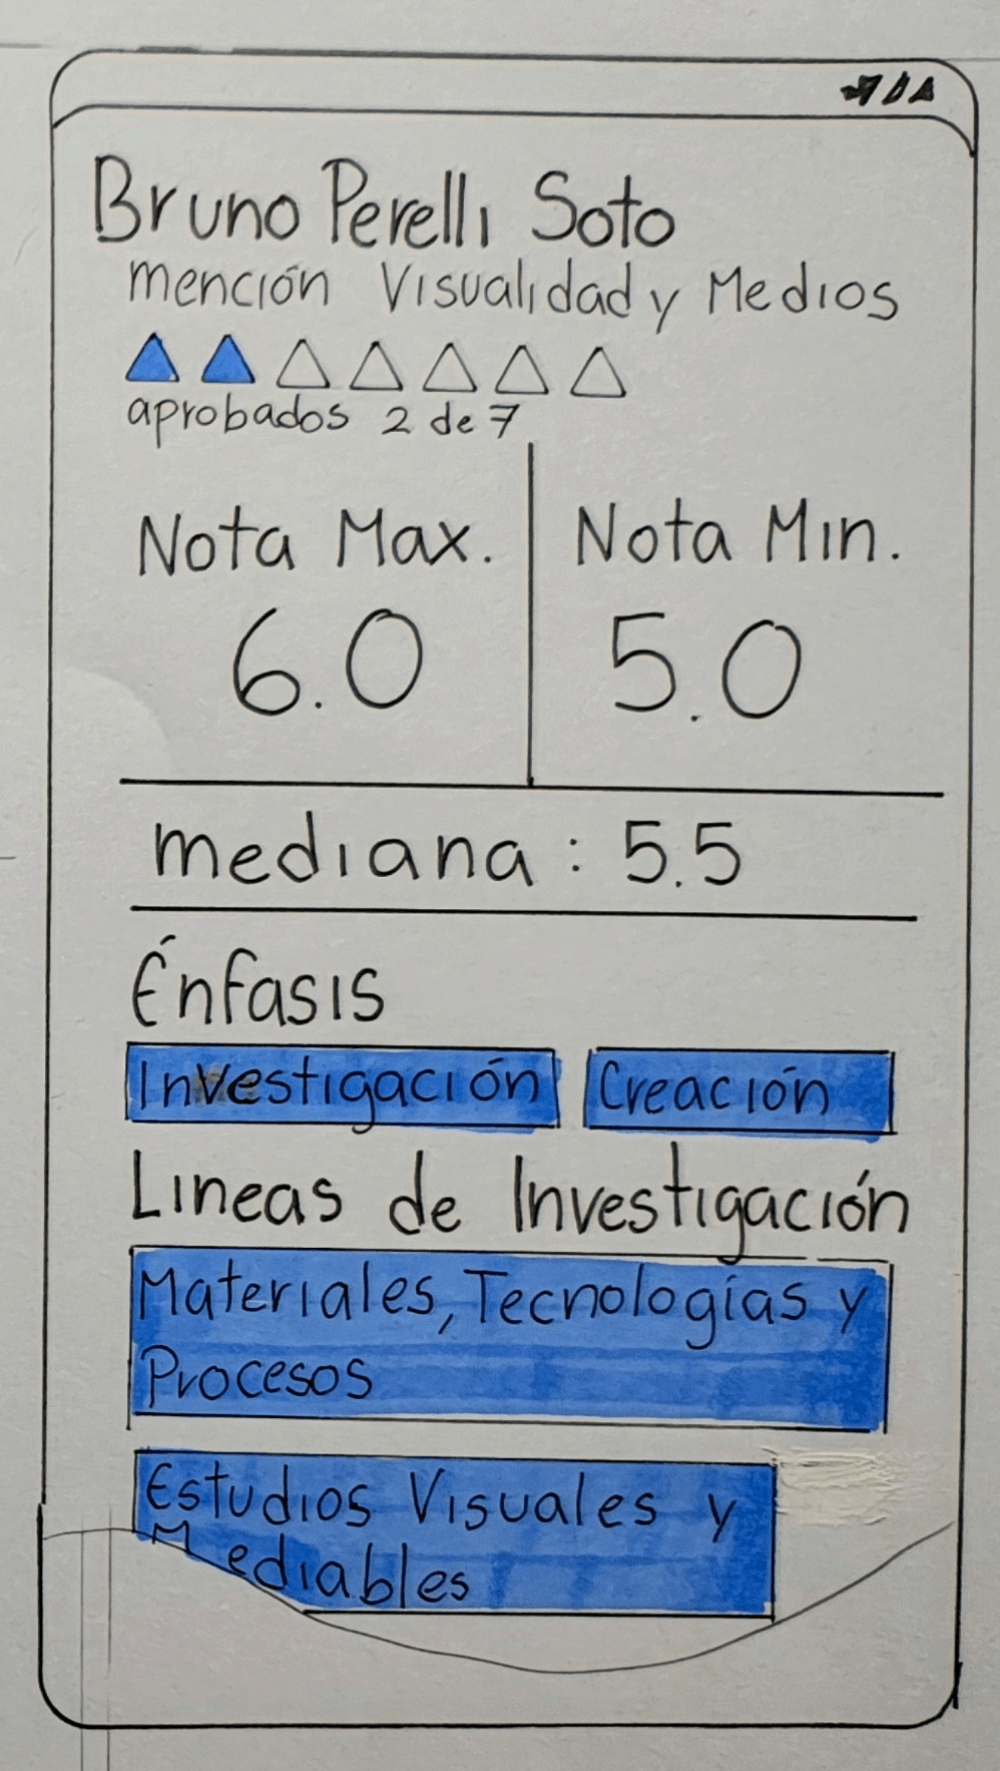 Bruno Perelli Soto
mención Visualidad y Medios
aprobados 2 de 7
Nota Max.
Nota Min.
6.0
5.0
mediana: 5.5
Énfasis
Investigación
Creación
Lineas de Investigación
Materiales, Tecnologías y
Procesos
Estudios Visuales y
Mediables